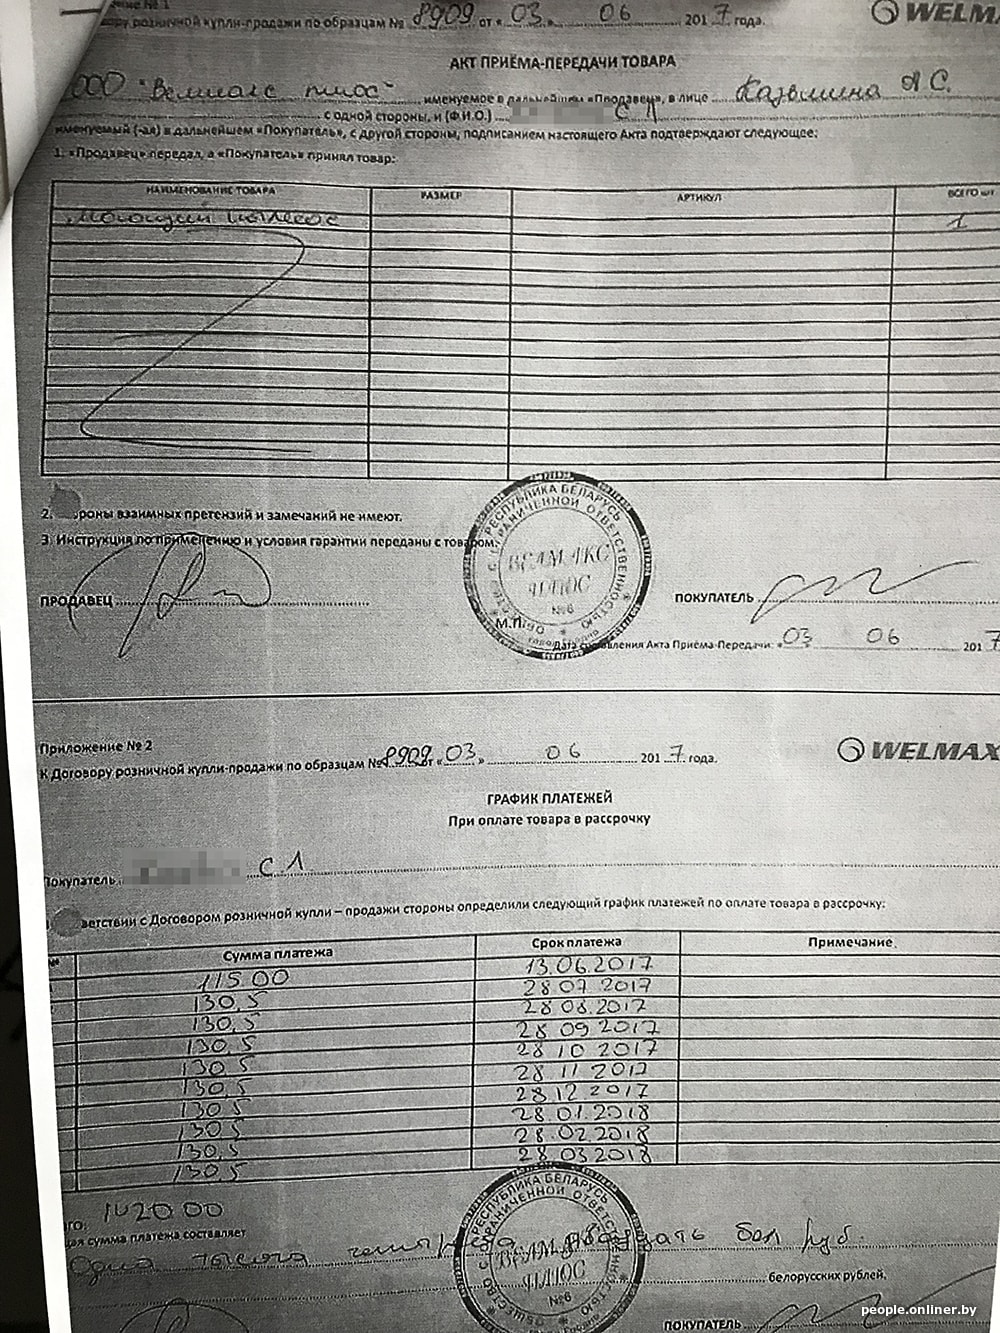 ение № 1
вору розничной купли-продажи по образцам № 8909 от «03» 06 2017 года. WELMA
АКТ ПРИЁМА-ПЕРЕДАЧИ ТОВАРА
ООО "Велмакс плюс" именуемое в дальнейшем «Продавец», в лице А С.
с одной стороны, и (Ф.И.О.) С Л
именуемый (-ая) в дальнейшем «Покупатель», с другой стороны, подписанием настоящего Акта подтверждают следующее:
1. «Продавец» передал, а «Покупатель» принял товар:
НАИМЕНОВАНИЕ ТОВАРА РАЗМЕР АРТИКУЛ ВСЕГО шт
1
2. роны взаимных претензий и замечаний не имеют.
3. Инструкция по применению и условия гарантии переданы с товаром.
РЕСПУБЛИКА БЕЛАРУСЬ
ОБЩЕСТВО С ОГРАНИЧЕННОЙ ОТВЕТСТВЕННОСТЬЮ
ВЕЛМАКС
ПЛЮС
№6
ПРОДАВЕЦ М.П. ПОКУПАТЕЛЬ
Дата составления Акта Приёма-Передачи: «03 06 2017
Приложение № 2
К Договору розничной купли-продажи по образцам № 8909 от «03» 06 2017 года. WELMAX
ГРАФИК ПЛАТЕЖЕЙ
При оплате товара в рассрочку
Покупатель С Л
ветствии с Договором розничной купли – продажи стороны определили следующий график платежей по оплате товара в рассрочку:
Сумма платежа Срок платежа Примечание
115.00 13.06.2017
130,5 28 07 2017
130,5 28 08.2017
130,5 28 09 2017
130,5 28 10 2017
130,5 28 11 2017
130,5 28.12 2017
130,5 28.01.2018
130,5 28.02.2018
130,5 28 03 2018
130,5
го: 1420.00
щая сумма платежа составляет
Одна тысяча четыреста двадцать бел руб.
белорусских рублей.
РЕСПУБЛИКА БЕЛАРУСЬ
ОБЩЕСТВО С ОГРАНИЧЕННОЙ ОТВЕТСТВЕННОСТЬЮ
ВЕЛМАКС
ПЛЮС
№6
ПОКУПАТЕЛЬ
people.onliner.by